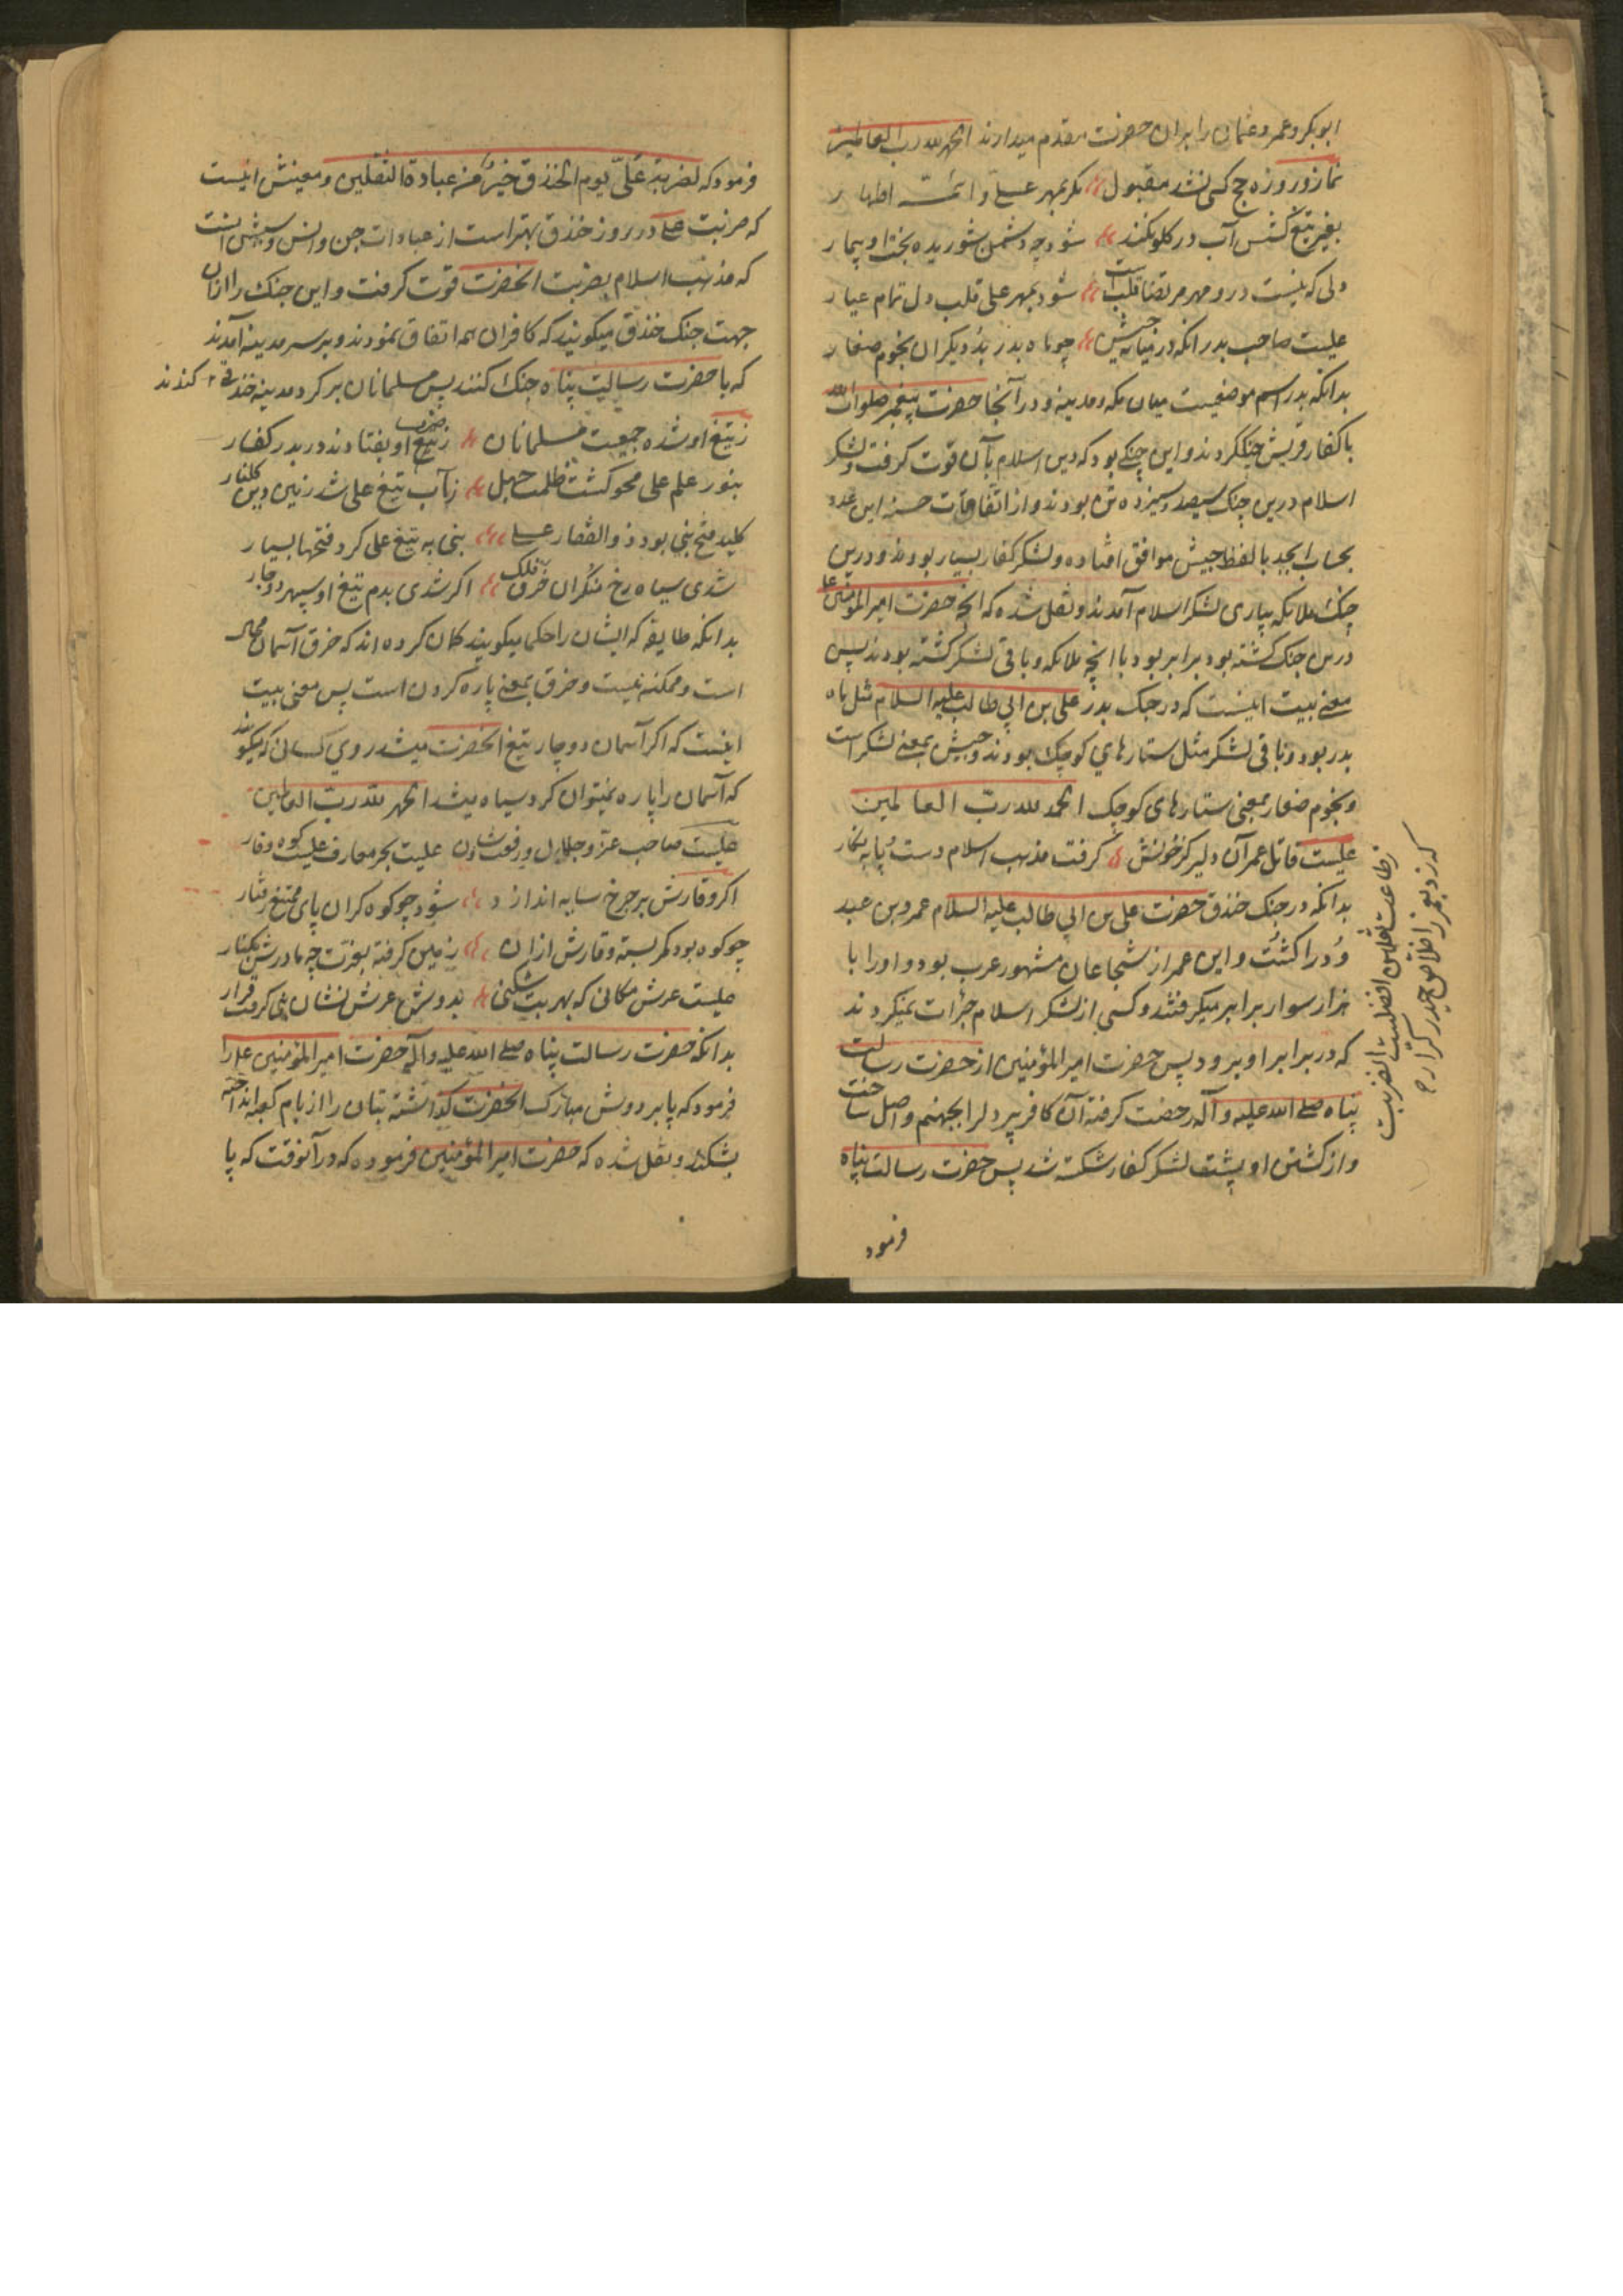 ابوبکر و عمر و عثمان را بران حضرت مقدم میدارند الحمد لله رب العالمین
نماز و روزه و حج کسی نشد مقبول مکر بمهر علی و ائمه اطهار
بغیر تیغ کسش آب در کلو نکند شود چه دشمن شوریده بخت او بیمار
دلی که نیست درو مهر مرتضا قلب است شود بمهر علی قلب دل تمام عیار
علیست صاحب بدر انکه در میانه جیش چو ماه بدر بد و دیکران نجوم صغار
بدانکه بدر اسم موضعیست میان مکه و مدینه و در آنجا حضرت پیغمبر صلوات الله
با کفار قریش جنک کردند و این جنکی بود که دین اسلام بآن قوت کرفت و لشکر
اسلام درین جنک سیصد و سیزده تن بودند و از اتفاقات حسنه این عدد
بحساب ابجد با لفظ جیش موافق افتاده و لشکر کفار بسیار بودند و درین
جنک ملائکه بیاری لشکر اسلام آمدند و نقل شده که انچه حضرت امیر المؤمنین علی
درین جنک کشته بود برابر بود با انچه ملائکه و باقی لشکر کشته بودند پس
معنی بیت اینست که در جنک بدر علی بن ابی طالب علیه السلام مثل ماه
بدر بود و باقی لشکر مثل ستارهای کوچک بودند و جیش بمعنی لشکر است
و نجوم صغار بمعنی ستارهای کوچک الحمد لله رب العالمین
علیست قاتل عمر آن دلیر کز خونش کرفت مذهب اسلام دست و پا به نکار
بدانکه در جنک خندق حضرت علی بن ابی طالب علیه السلام عمرو بن عبد
ود را کشت و این عمر از شجاعان مشهور عرب بود و او را با
هزار سوار برابر میکرفتند و کسی از لشکر اسلام جرات نمیکردند
که در برابر او برود پس حضرت امیر المؤمنین از حضرت رسالت
پناه صلی الله علیه و آله رخصت کرفته آن کافر پردل را بجهنم واصل ساخت
و از کشتن او پشت لشکر کفار شکسته شد پس حضرت رسالت پناه
فرمود
ز طاعت ثقلین افضلست الضربت
که زد بعمر ز اخلاص حیدر کرار
فرمود که لضربة علی یوم الخندق خیر من عبادة الثقلین و معنیش اینست
که ضربت علی در روز خندق بهتر است از عبادات جن و انس
که مذهب اسلام بضربت انحضرت قوت کرفت و این جنک را ازان
جهت جنک خندق میکویند که کافران همه اتفاق نمودند و بر سر مدینه آمدند
که با حضرت رسالت پناه جنک کنند پس مسلمانان بر کرد مدینه خندقی کندند
ز تیغ او شده جمعیت مسلمانان ز تیغ او بفتادند در بدر کفار
بنور علم علی محو کشت ظلمت جهل ز آب تیغ علی شد زمین دین کلنار
کلید فتح نبی بود ذو الفقار علی نبی به تیغ علی کرد فتحها بسیار
شدی سیاه رخ منکران خرق فلک اکر شدی بدم تیغ او سپهر دوچار
بدانکه طایفه که ایشان را حکما میکویند کمان کرده اند که خرق آسمان محال
است و ممکنه نیست و خرق بمعنی پاره کردن است پس معنی بیت
اینست که اکر آسمان دوچار تیغ انحضرت میشد روی کسانی که میکویند
که آسمان را پاره نمیتوان کرد سیاه میشد الحمد لله رب العالمین
علیست صاحب عز و جلال و رفعت و شان علیست بحر معارف علیست کوه وقار
اکر وقارش بر چرخ سایه اندازد شود چو کوه کران پای ممتنع رفتار
چو کوه بود کمر بسته وقارش ازان زمین کرفته بعزت چه مادرش بکنار
علیست عرش مکانی که بهر بت شکنی بدوش عرش نشان نبی کرفت قرار
بدانکه حضرت رسالت پناه صلی الله علیه و آله حضرت امیر المؤمنین علی را
فرمود که پا بر دوش مبارک انحضرت کذاشته بتان را از بام کعبه انداخته
بشکند و نقل شده که حضرت امیر المؤمنین فرموده که در آنوقت که پا